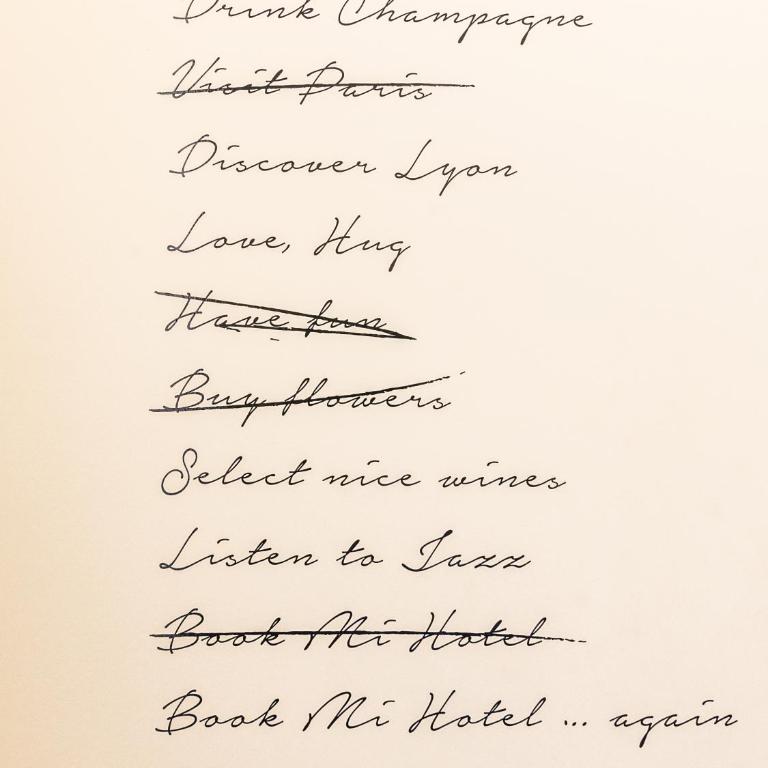 Drink Champagne
Visit Paris
Discover Lyon
Love, Hug
Have fun
Buy flowers
Select nice wines
Listen to Jazz
Book Mi Hotel
Book Mi Hotel ... again